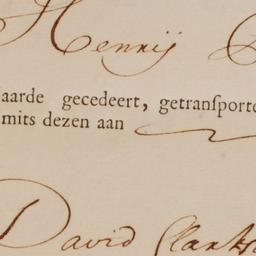 Henrij
aarde gecedeert, getranſporte
mits dezen aan
David Clark